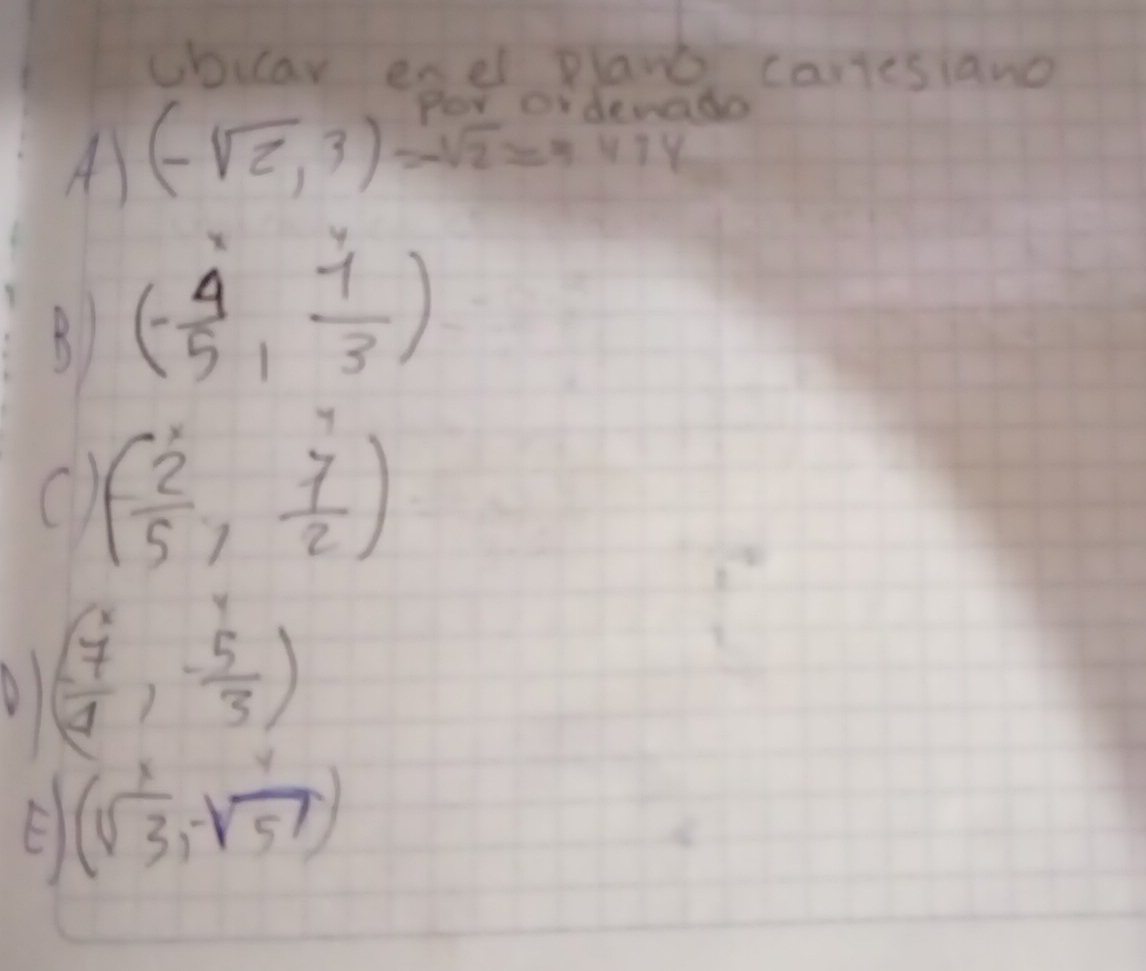 Ubicar en el plano cartesiano
Por ordenado
A) (-√2, 3) = -√2 =
x y
B) (-4/5, 1/3)
x y
C) (-2/5, 7/2)
x y
D) (7/4, -5/3)
x y
E) (√3, -√5)